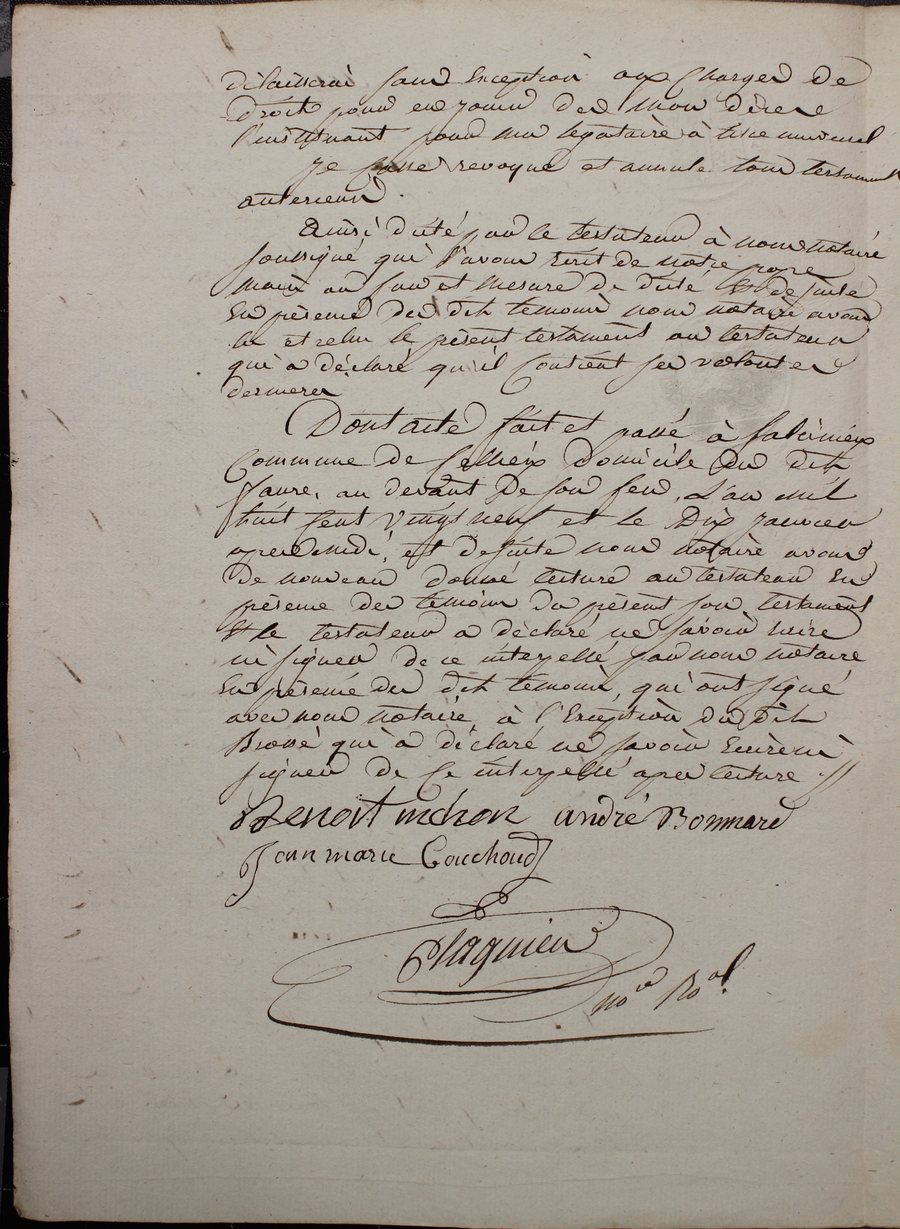 délaisserai sans Exception aux charges de
droit pour en jouir dès mon décès
l'instituant pour ma légataire à titre universel
je revoque et annule tous testament
anterieurs.
Ainsi dicté par le testateur à nous notaire
soussigné qui l'avons Ecrit de notre propre
main au fur et mesure de dicté Et de suite
En présence des dits temoins nous notaire avons
lu et relu le présent testament au testateur
qui a déclaré qu'il Contient ses volontes
dernieres
Dont acte fait et passé à
Commune de domicile du dit
faure, au devant de son feu, L'an mil
huit Cent Vingt neuf et le Dix janvier
apres midi, et de suite nous notaire avons
de nouveau donné lecture au testateur En
présence des temoins du présent son testament
Et le testateur a déclaré ne savoir Ecrire
ni signer de ce interpellé par nous notaire
En présence des dits temoins, qui ont signé
avec nous notaire, à l'Exception du dit
Brossé qui a déclaré ne savoir Ecrire ni
signer de Ce interpellé apres lecture //
Benoit andré Bonnard
Jean marie Couchoud
plagnieu
no.re Ro.al